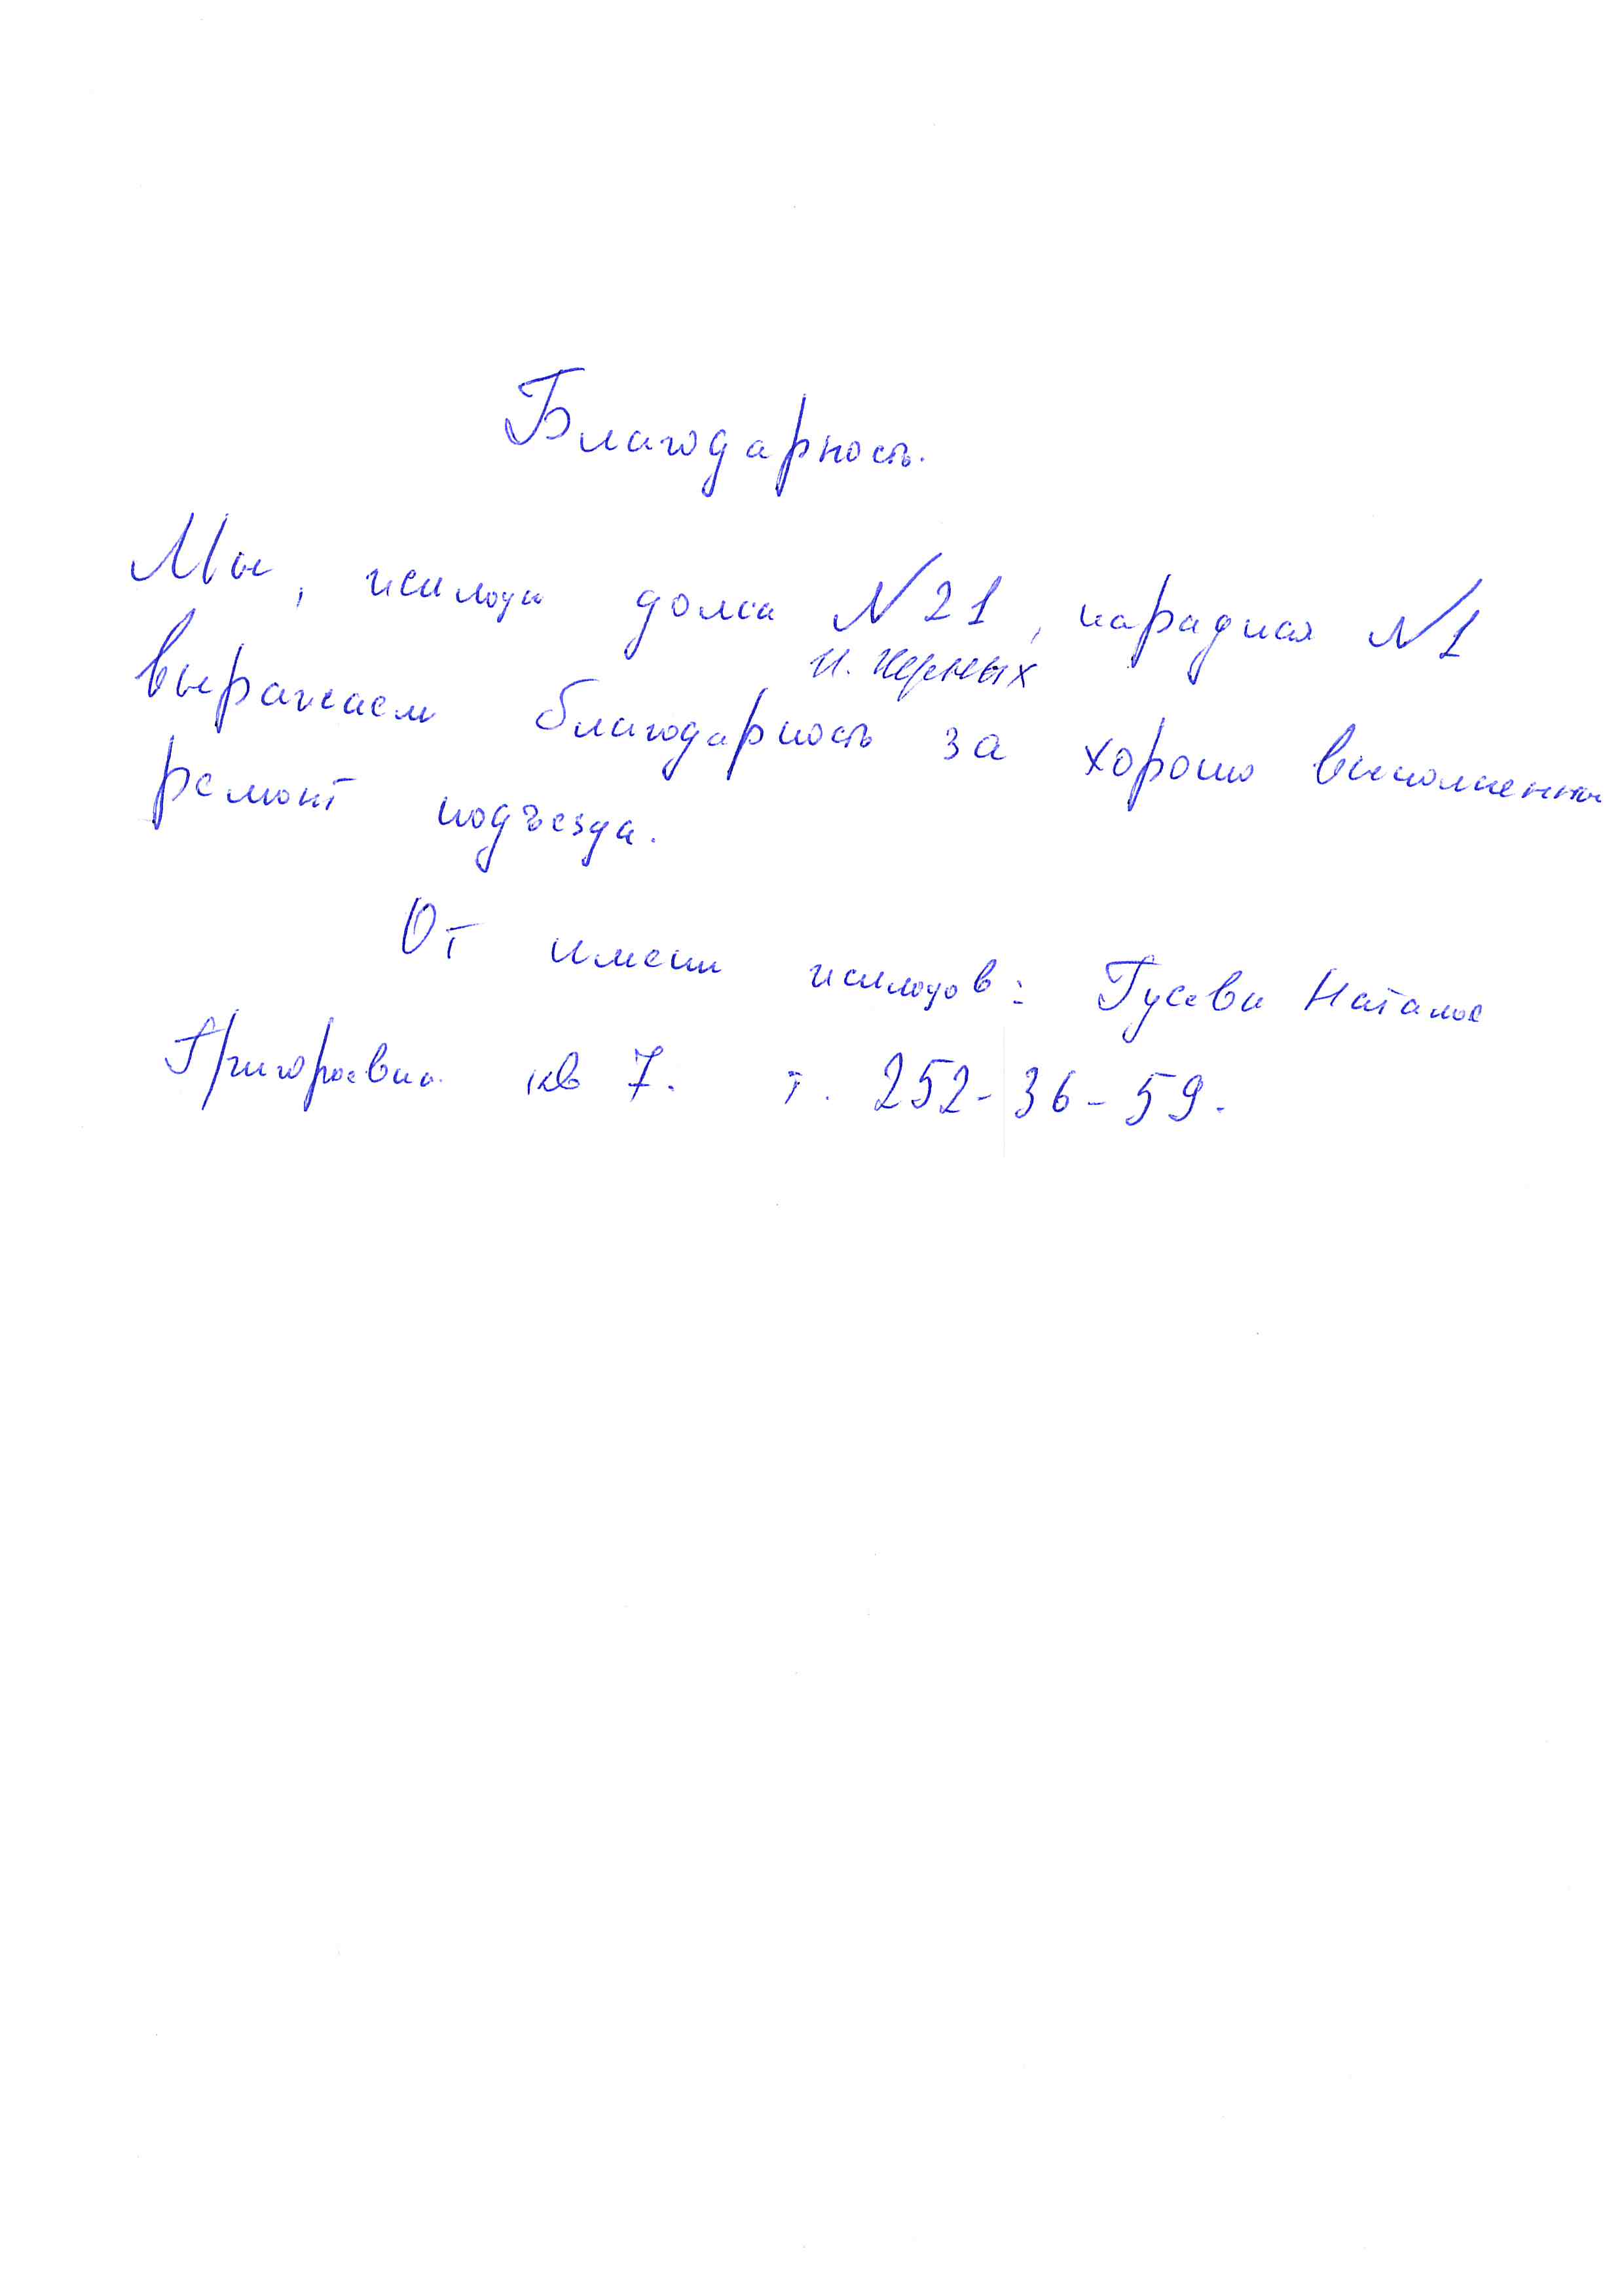 Благодарность.
Мы, жильцы дома N 21, парадная N 1
выражаем благодарность за хорошо выполненный
ремонт подъезда.
От имени жильцов: Гусева Наталья
Григорьевна кв 7. т. 252-36-59.